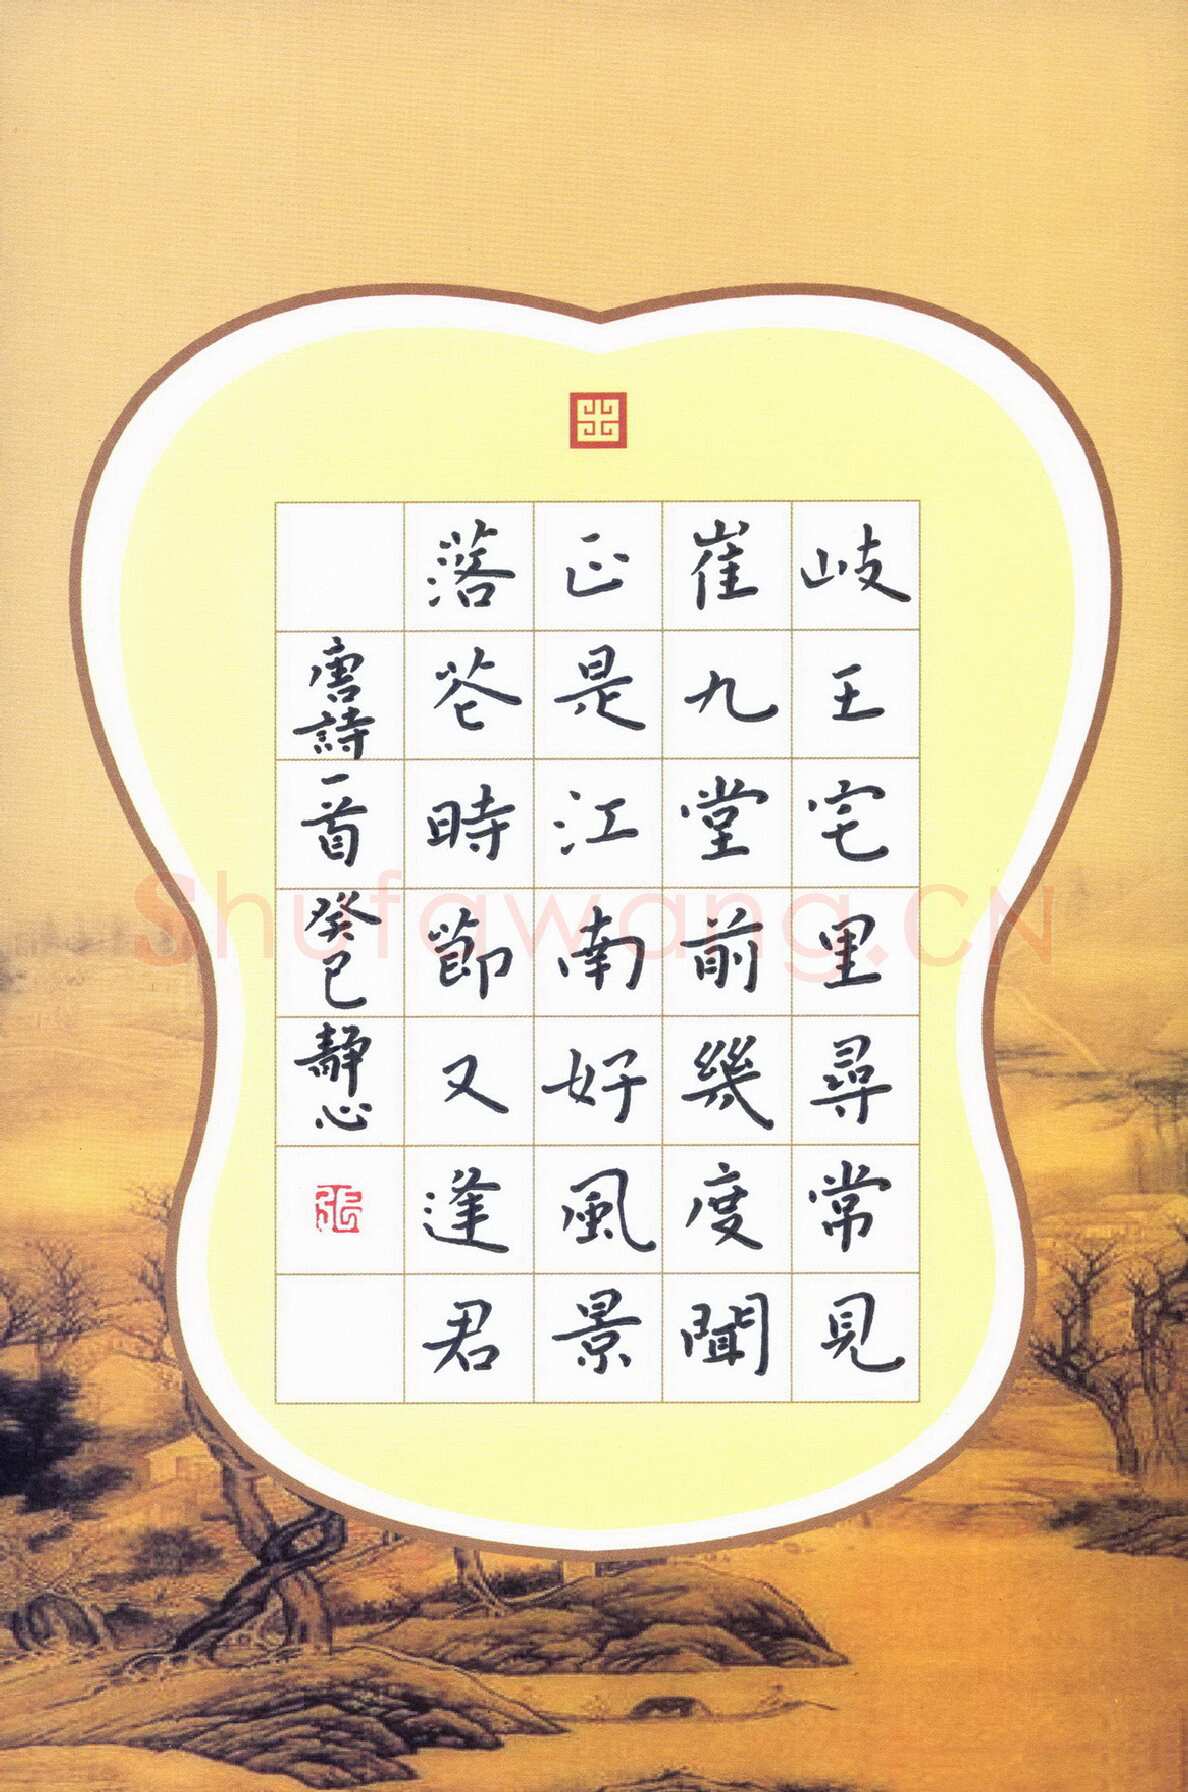 岐王宅里尋常見
崔九堂前幾度聞
正是江南好風景
落花時節又逢君
唐詩一首癸巳靜心
張
Shufawang.CN